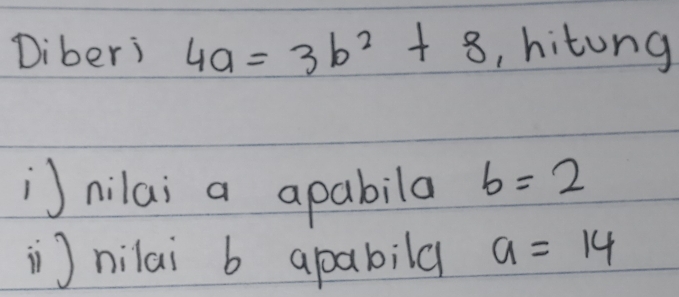 Diberi 4a = 3b² + 8, hitung
i) nilai a apabila b = 2
ii) nilai b apabila a = 14